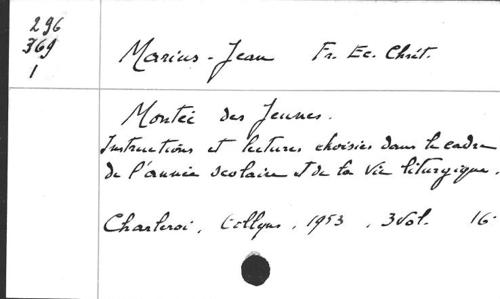 296
369
1
Marius-Jean Fr. Ec. Chrét.
Montée des Jeunes.
Instructions et lectures choisies dans le cadre
de l'année scolaire et de la vie liturgique.
Charleroi, 1953, 3 Vol. 16°